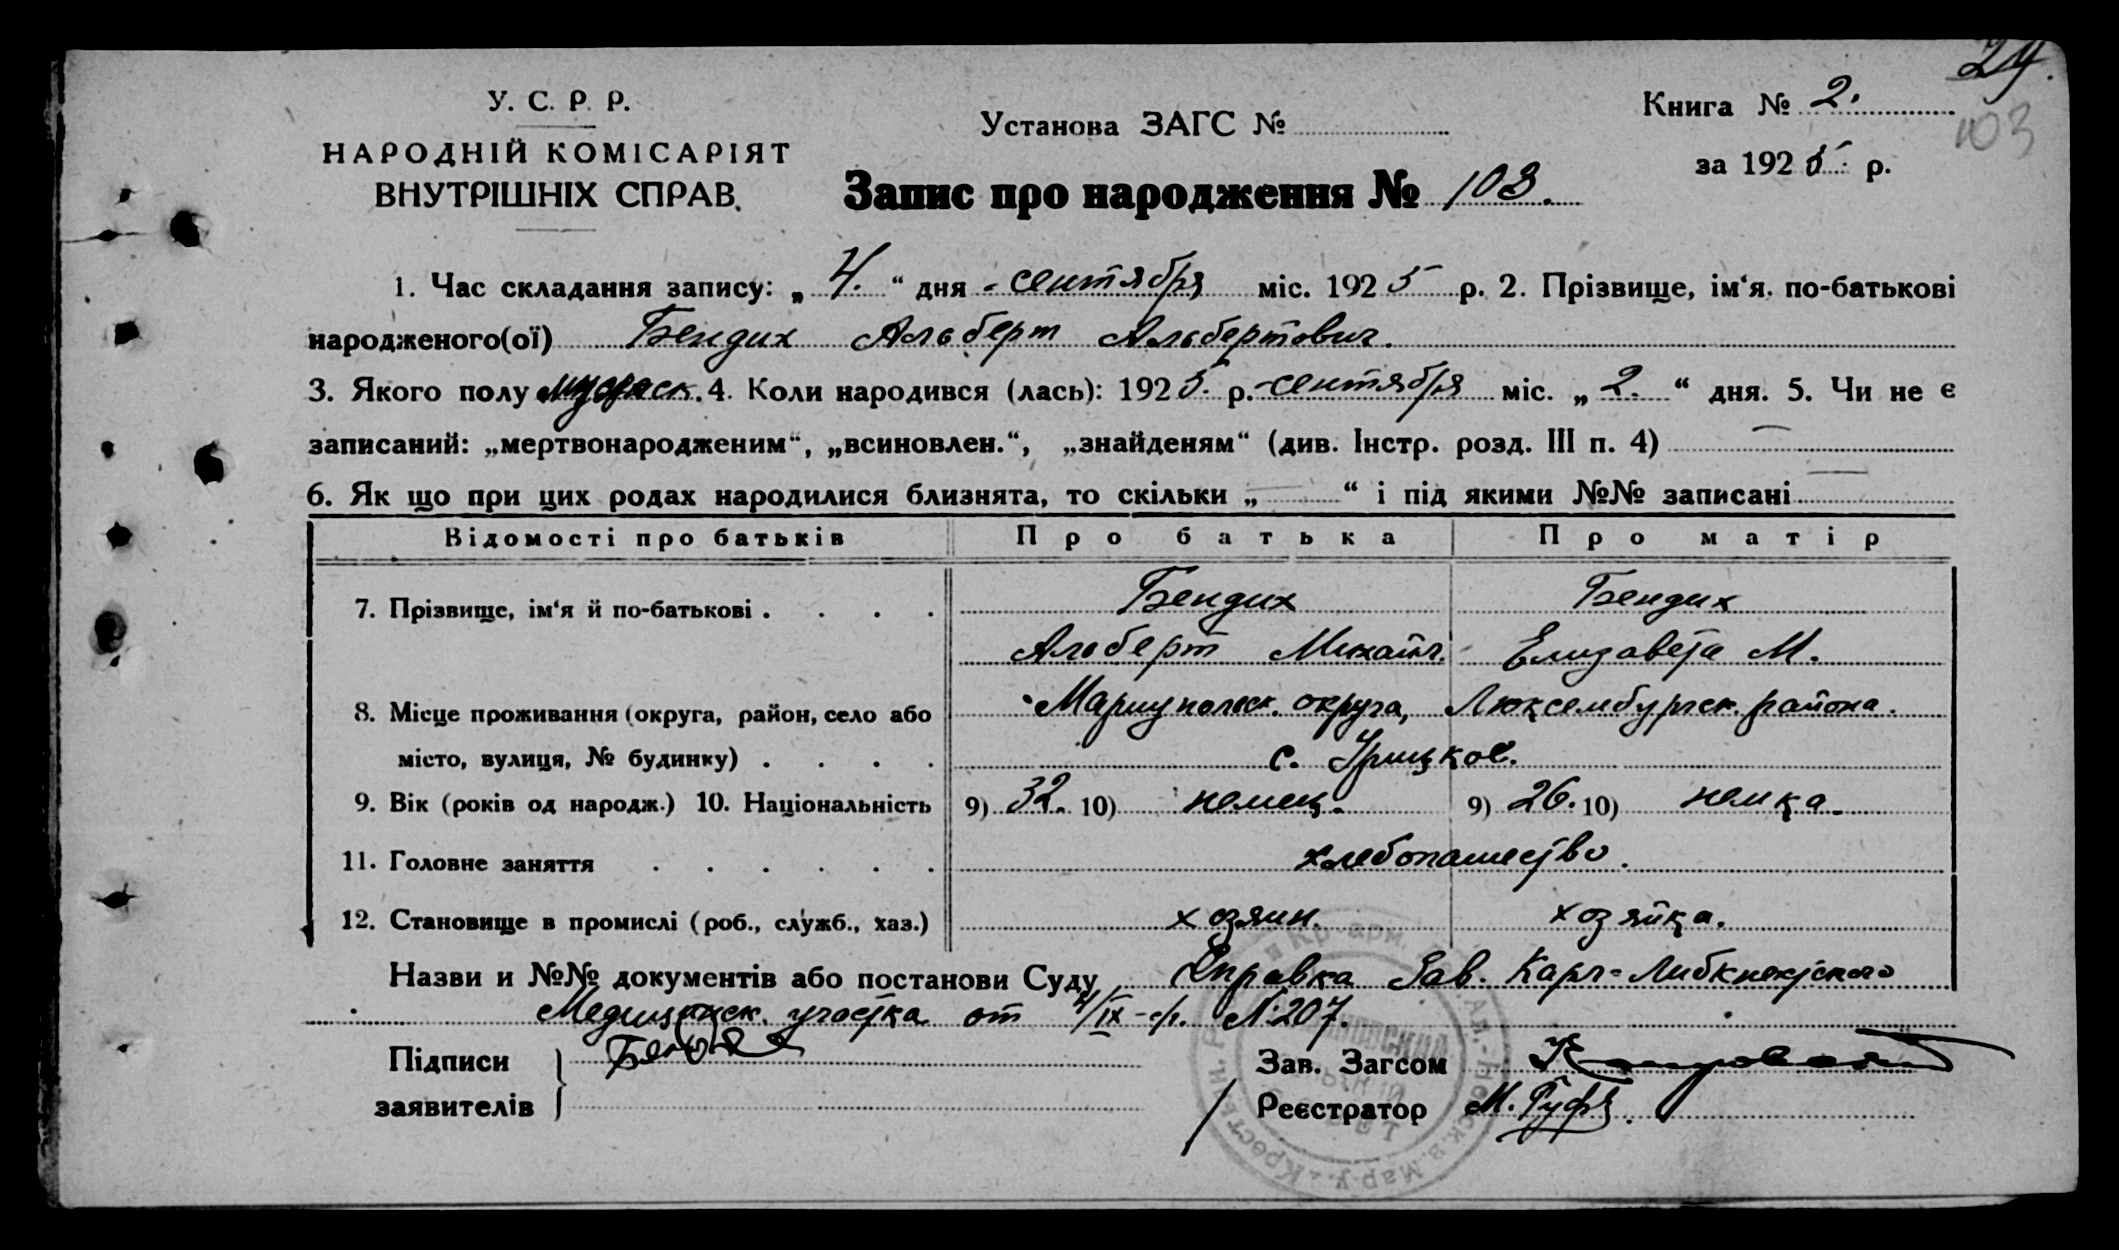 29.
У. С. Р. Р.
НАРОДНІЙ КОМІСАРІЯТ
ВНУТРІШНІХ СПРАВ.
Установа ЗАГС №
Книга № 2.
103
за 1925 р.
Запис про народження № 103.
1. Час складання запису: „ 4. “ дня - сентября міс. 1925 р. 2. Прізвище, ім‘я. по-батькові
народженого(ої) Бендих Альберт Альбертович.
3. Якого полу мужеск. 4. Коли народився (лась): 1925. р. - сентября міс. „ 2. “ дня. 5. Чи не є
записаний: „мертвонародженим“, „всиновлен.“, „знайденям“ (див. Інстр. розд. III п. 4) —
6. Як що при цих родах народилися близнята, то скільки „ — “ і під якими №№ записані —
Відомості про батьків Про батька Про матір
7. Прізвище, ім‘я й по-батькові . . . . Бендих Бендих
Альберт Михайл. Елизавета М.
8. Місце проживання (округа, район, село або Мариупольск. округа, Люксембургск. района.
місто, вулиця, № будинку) . . . . с. Урицков.
9. Вік (років од народж.) 10. Національність 9) 32. 10) немец. 9) 26. 10) немка.
11. Головне заняття . . . . . . хлебопашество.
12. Становище в промислі (роб., служб., хаз.) хозяин. хозяйка.
Назви и №№ документів або постанови Суду Справка Зав. Карл-Либкнехтского
Медицинск. участка от 4/IX-с/г. № 207.
Підписи
заявителів
Зав. Загсом
Реєстратор М.